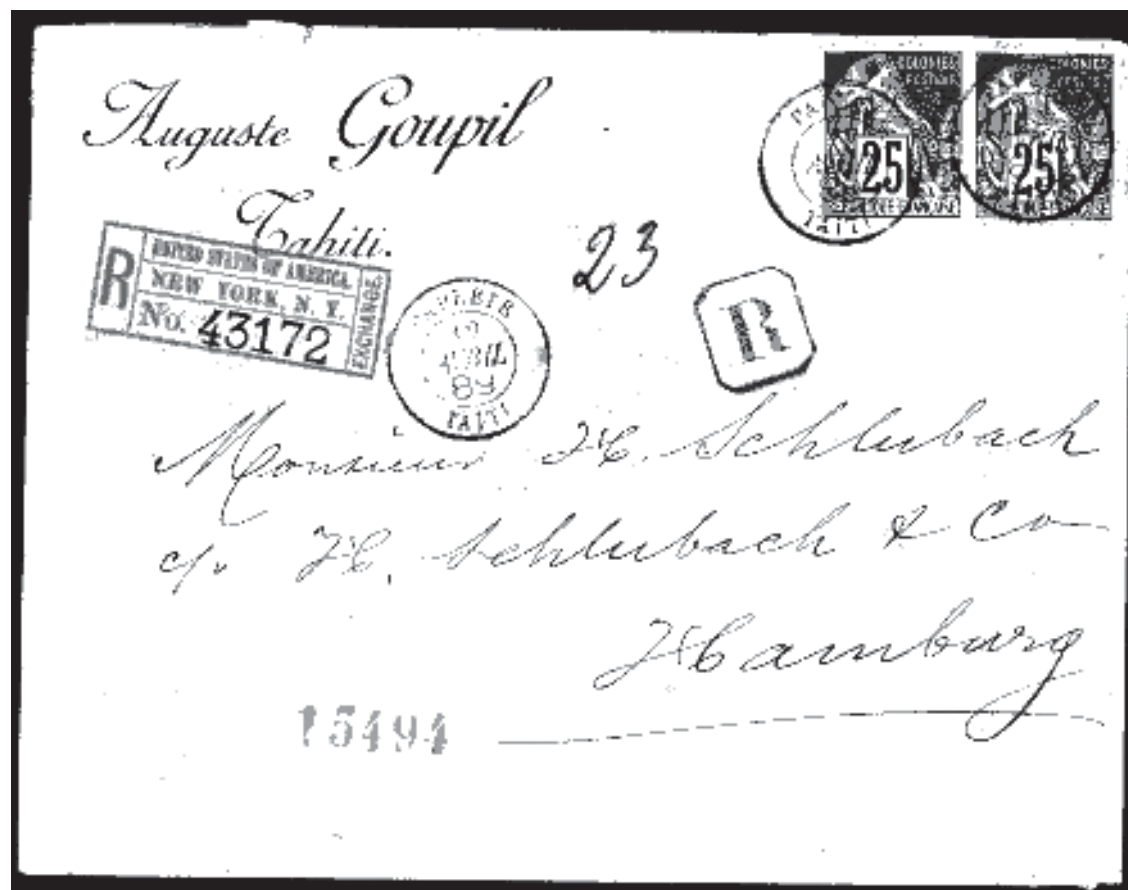 Auguste Goupil
Tahiti.
COLONIES
POSTES
25
COLONIES
25
TAITI
23
R
UNITED STATES OF AMERICA.
NEW YORK, N. Y.
No. 43172
EXCHANGE.
PAPEETE
AVRIL
89
TAITI
R
Monsieur H. Schlubach
c/o H. Schlubach & Co
Hamburg
15494